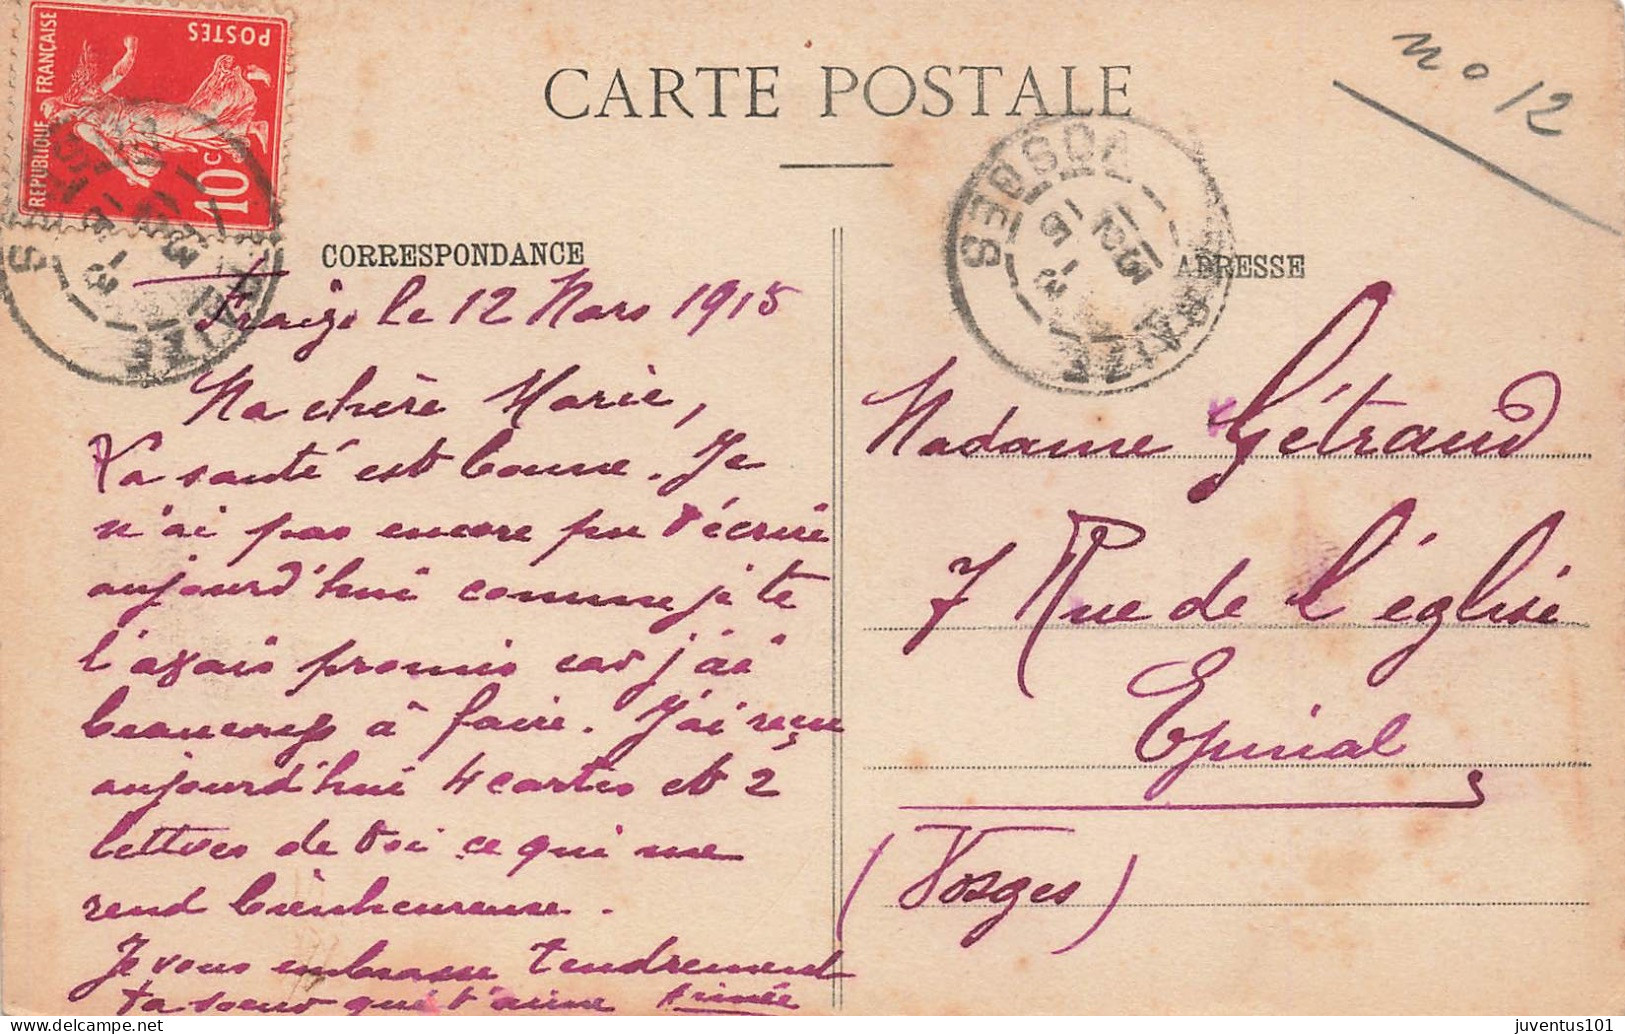 CARTE POSTALE
no 12
POSTES
REPUBLIQUE FRANÇAISE
10c
CORRESPONDANCE
Fraize le 12 Mars 1915
Ma chère Marie,
Ta santé est bonne. Je
n'ai pas encore pu t'écrire
aujourd'hui comme je te
l'avais promis car j'ai
beaucoup à faire. J'ai reçu
aujourd'hui 4 cartes et 2
lettres de toi ce qui me
rend bienheureuse.
Je vous embrasse tendrement
ta soeur qui t'aime Aimée
FRAIZE
VOSGES
12-3
15
ADRESSE
Madame Gétraud
7 Rue de l'église
Epinal
(Vosges)
juventus101